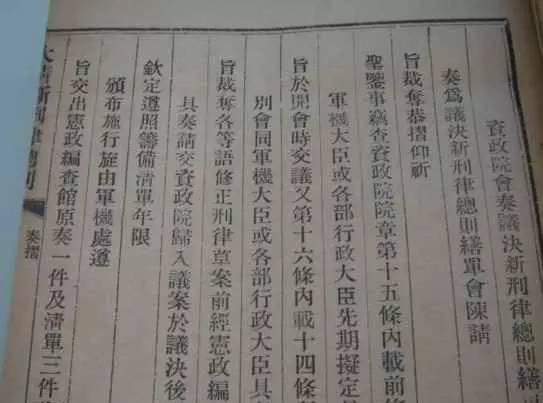 資政院會奏議決新刑律總則繕單
奏爲議決新刑律總則繕單會陳請
旨裁奪恭摺仰祈
聖鑒事竊查資政院院章第十五條內載前條
軍機大臣或各部行政大臣先期擬定具
旨於開會時交議又第十六條內載十四條
別會同軍機大臣或各部行政大臣具
旨裁奪各等語修正刑律草案前經憲政編
具奏請交資政院歸入議案於議決後
欽定遵照籌備清單年限
頒布施行旋由軍機處遵
旨交出憲政編查館原奏一件及清單三件
大清新刑律總則
奏摺